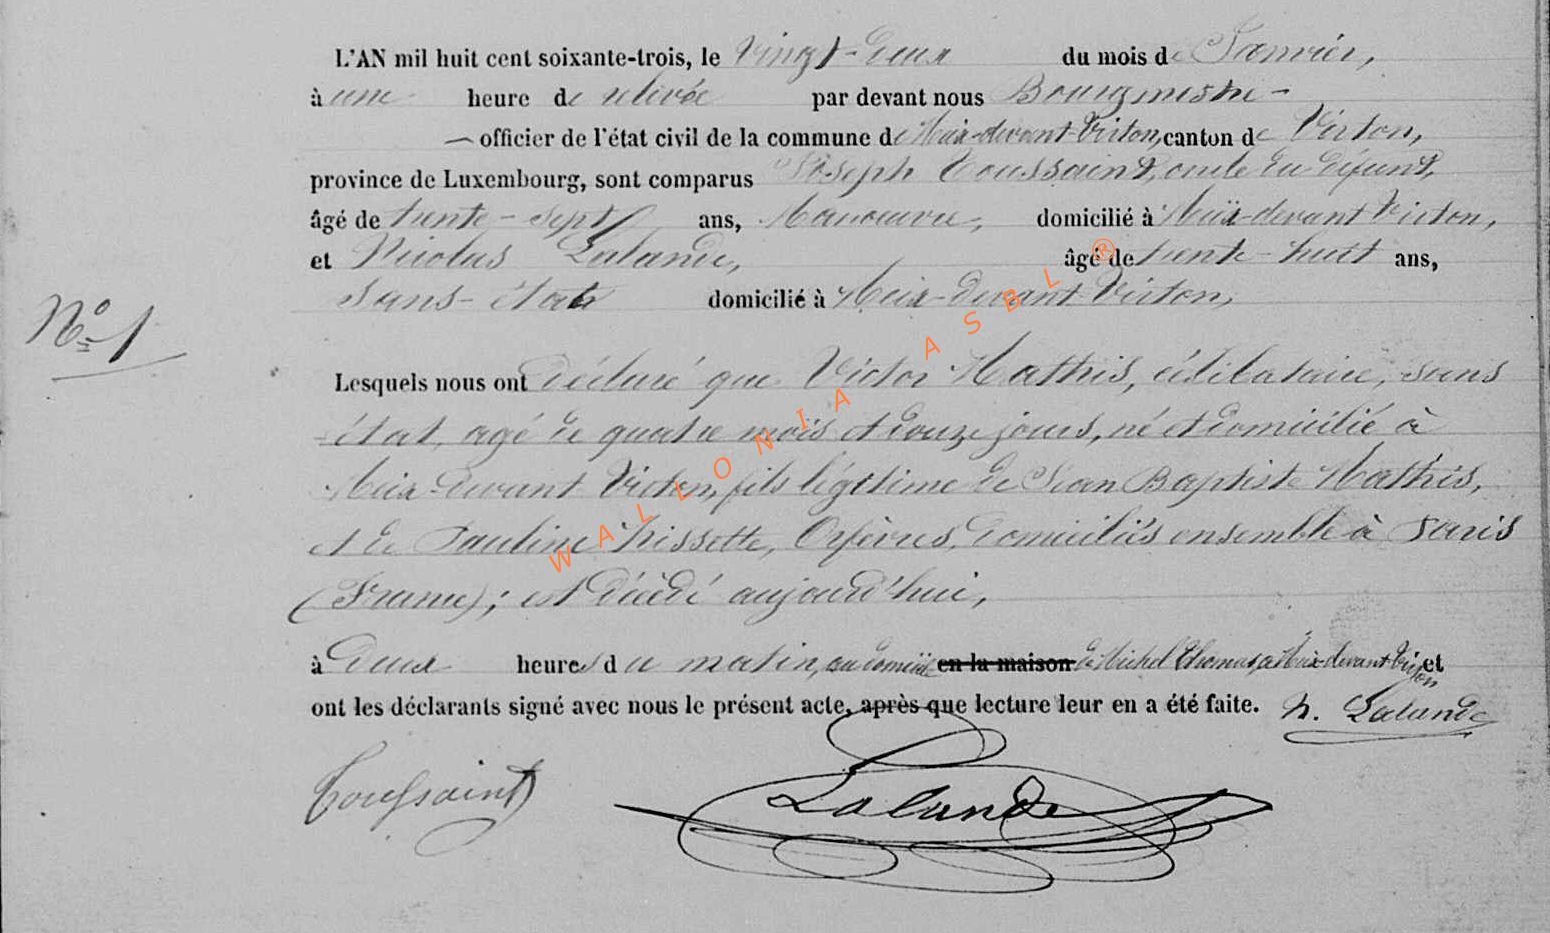 L'AN mil huit cent soixante-trois, le vingt-deux du mois de Janvier,
à une heure de relevée par devant nous Bourgmestre -
— officier de l'état civil de la commune de Meix-devant-Virton, canton de Virton,
province de Luxembourg, sont comparus Joseph Toussaint, oncle du défunt,
âgé de trente-sept ans, Manoeuvre, domicilié à Meix-devant Virton,
et Nicolas Lalande, âgé de trente-huit ans,
sans-état domicilié à Meix-devant-Virton,
N° 1
Lesquels nous ont déclaré que Victor Mathis, célibataire, sans
état, agé de quatre mois et douze jours, né et domicilié à
Meix-devant Virton, fils légitime de Jean Baptiste Mathis,
et de Pauline Frissette, Orfèvres, domiciliés ensemble à Paris
(France); est décédé aujourd'hui,
à deux heures du matin, au domicile en la maison de Michel Thomas, à Meix-devant-Virton et
ont les déclarants signé avec nous le présent acte, après que lecture leur en a été faite. N. Lalande
Toussaint Lalande
WALLONIA ASBL ®